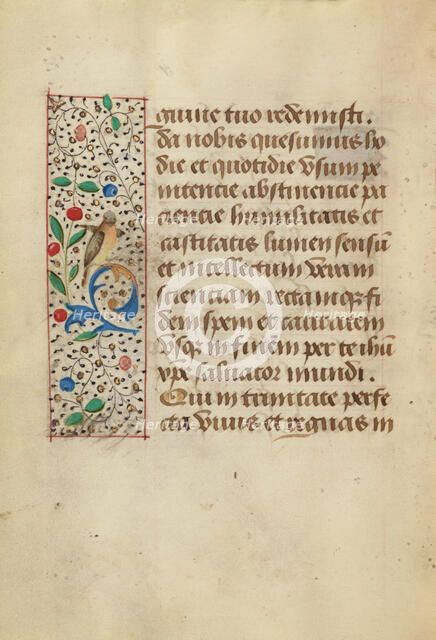 guine tuo redemisti.
da nobis quesumus ho
die et quotidie usum pe
nitencie abstinencie pa
ciencie humilitatis et
castitatis lumen sensuu̅
et intellectum veram
scienciam rectamq̨ fi
dem spem et caritatem
vsq̨ in finem per te ihu̅
xp̅e saluator mundi.
Qui in trinitate perfe
cta viuis et regnas in
Heritage Images